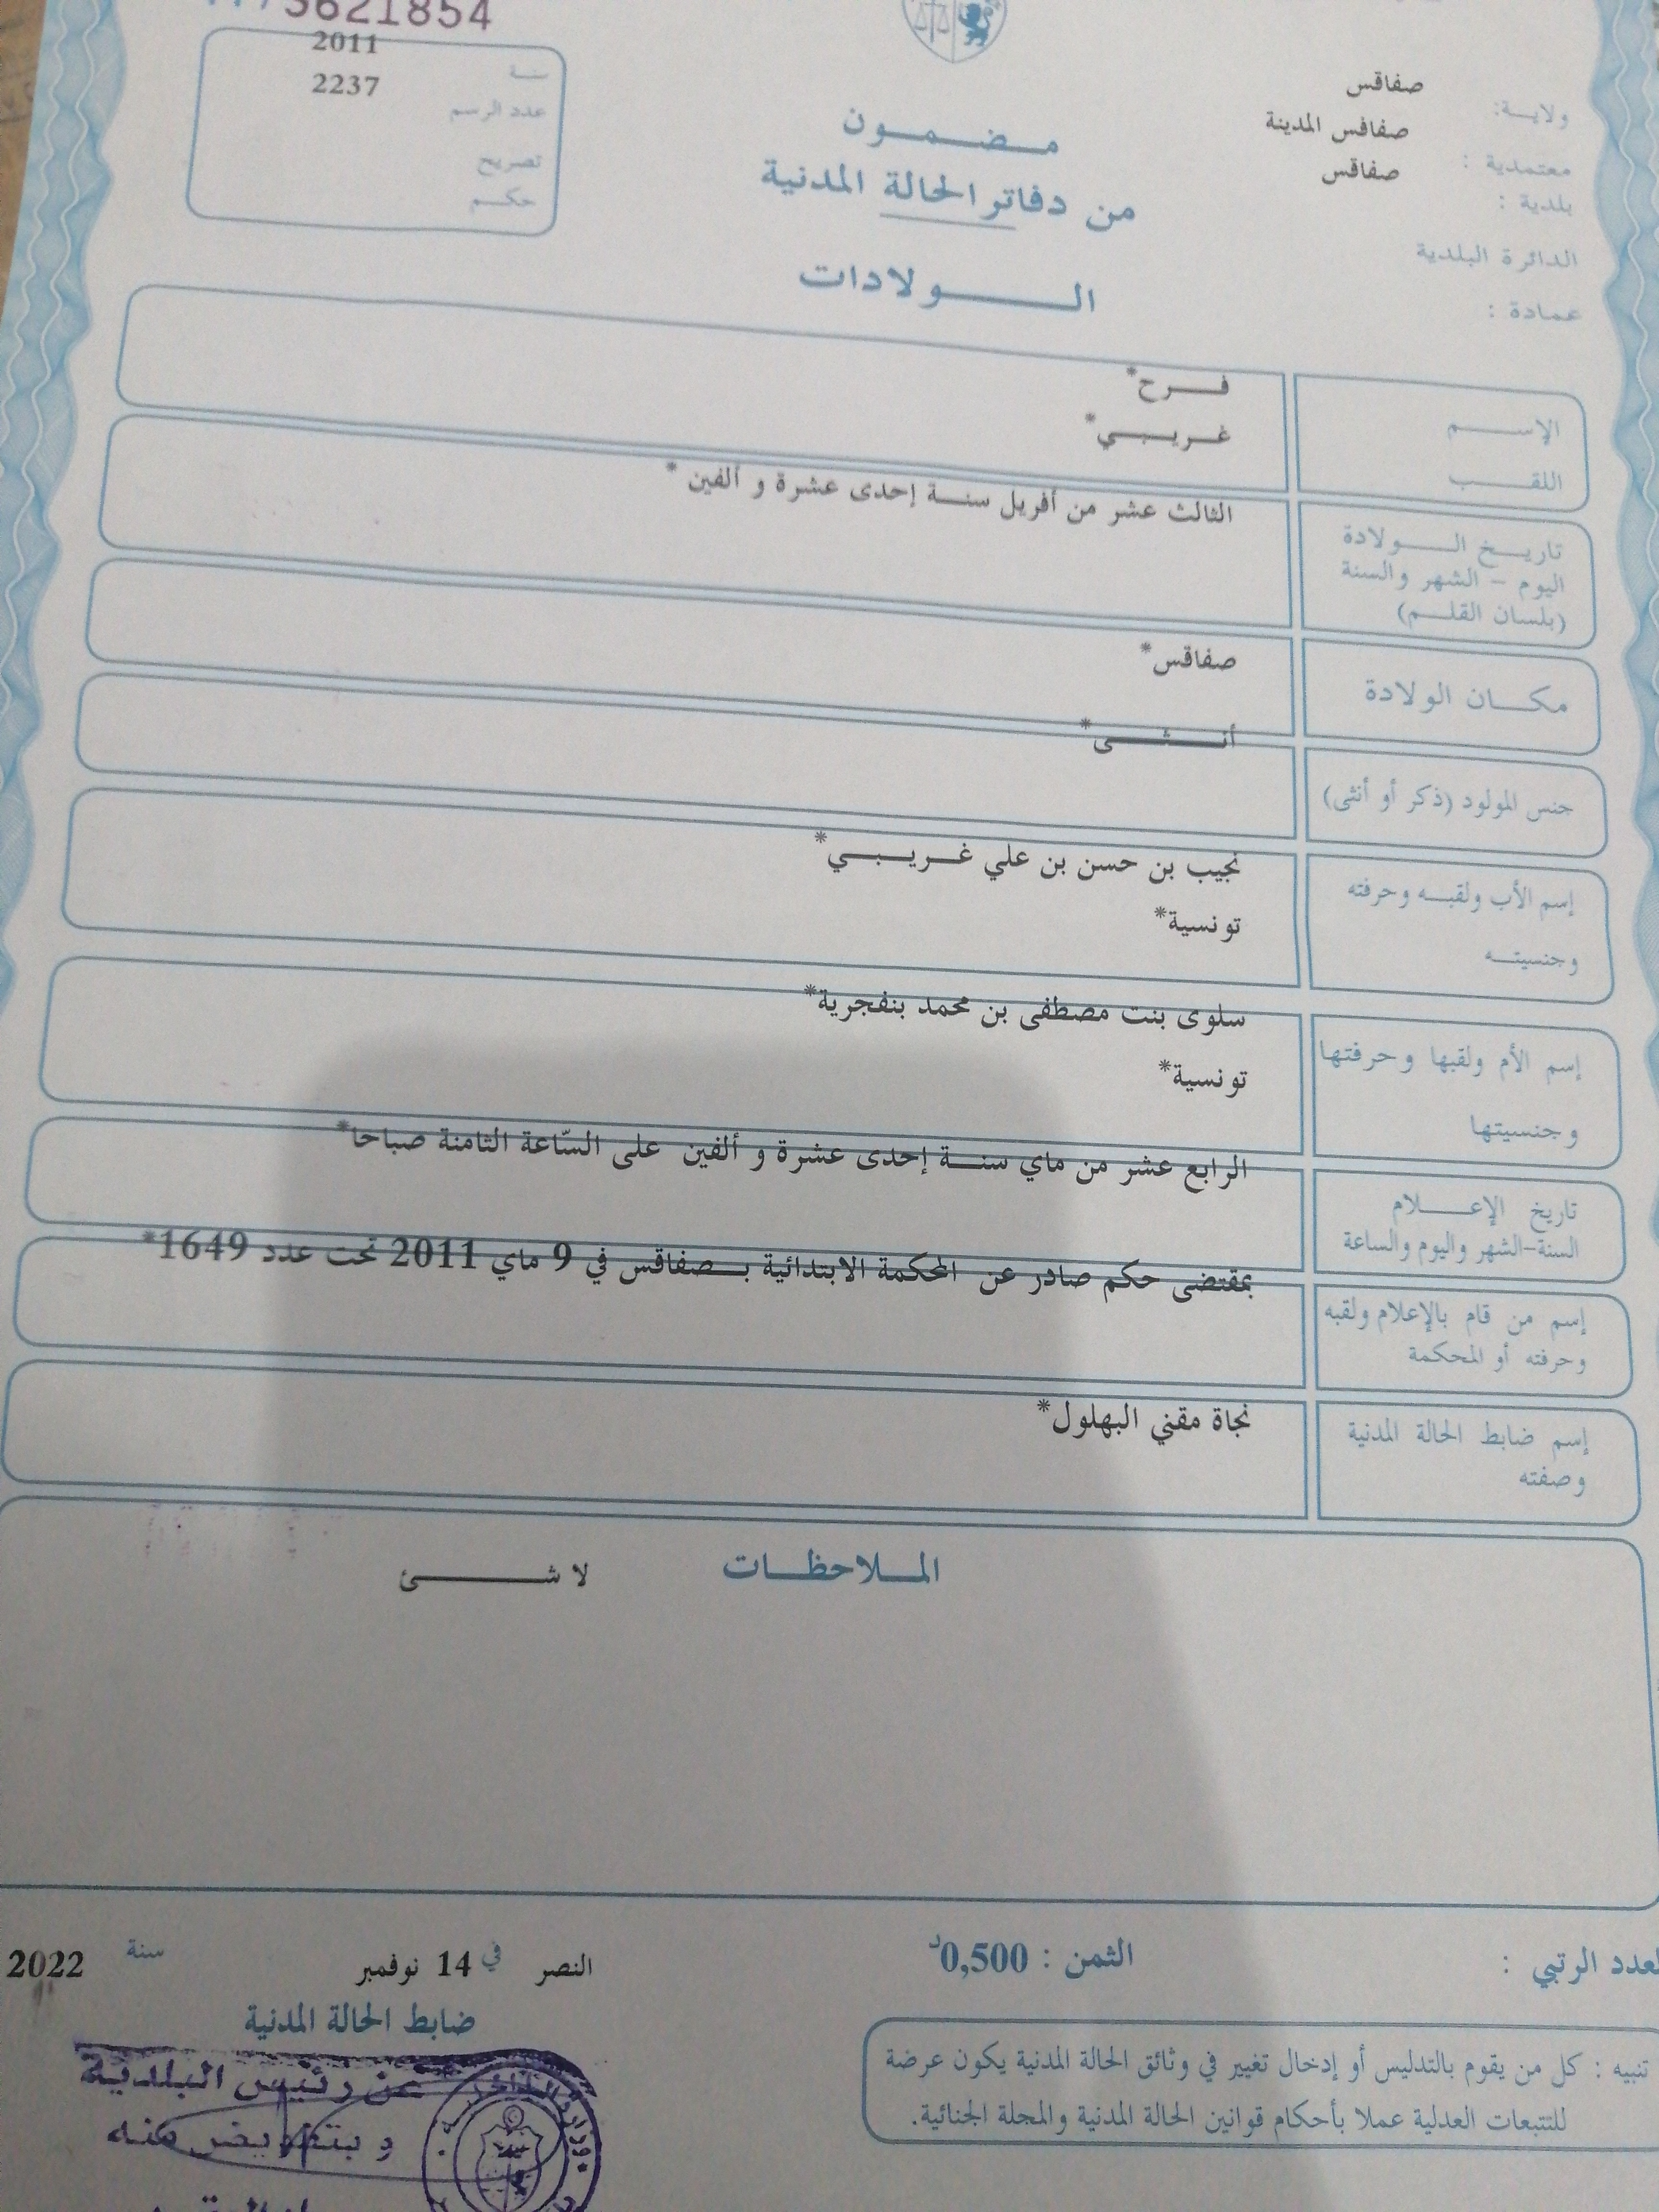 3621854
سنة 2011
عدد الرسم 2237
تصريح
حكم
ولاية: صفاقس
معتمدية : صفاقس المدينة
بلدية : صفاقس
الدائرة البلدية
عمادة :
مضمون
من دفاتر الحالة المدنية
الولادات
الإسم فرح*
اللقب غريبي*
تاريخ الولادة الثالث عشر من أفريل سنة إحدى عشرة و ألفين *
اليوم - الشهر والسنة
(بلسان القلم)
مكان الولادة صفاقس*
جنس المولود (ذكر أو أنثى) أنثى*
إسم الأب ولقبه وحرفته نجيب بن حسن بن علي غريبي*
وجنسيته تونسية*
إسم الأم ولقبها وحرفتها سلوى بنت مصطفى بن محمد بنفجرية*
وجنسيتها تونسية*
تاريخ الإعلام الرابع عشر من ماي سنة إحدى عشرة و ألفين على السّاعة الثامنة صباحا*
السنة-الشهر واليوم والساعة
إسم من قام بالإعلام ولقبه بمقتضى حكم صادر عن المحكمة الابتدائية بصفاقس في 9 ماي 2011 تحت عدد 1649*
وحرفته أو المحكمة
إسم ضابط الحالة المدنية نجاة مقني البهلول*
وصفته
الملاحظات لا شئ
العدد الرتبي :
الثمن : 0,500د
النصر في 14 نوفمبر سنة 2022
ضابط الحالة المدنية
تنبيه : كل من يقوم بالتدليس أو إدخال تغيير في وثائق الحالة المدنية يكون عرضة
للتتبعات العدلية عملا بأحكام قوانين الحالة المدنية والمجلة الجنائية.
عن رئيس البلدية
و بتفويض منه